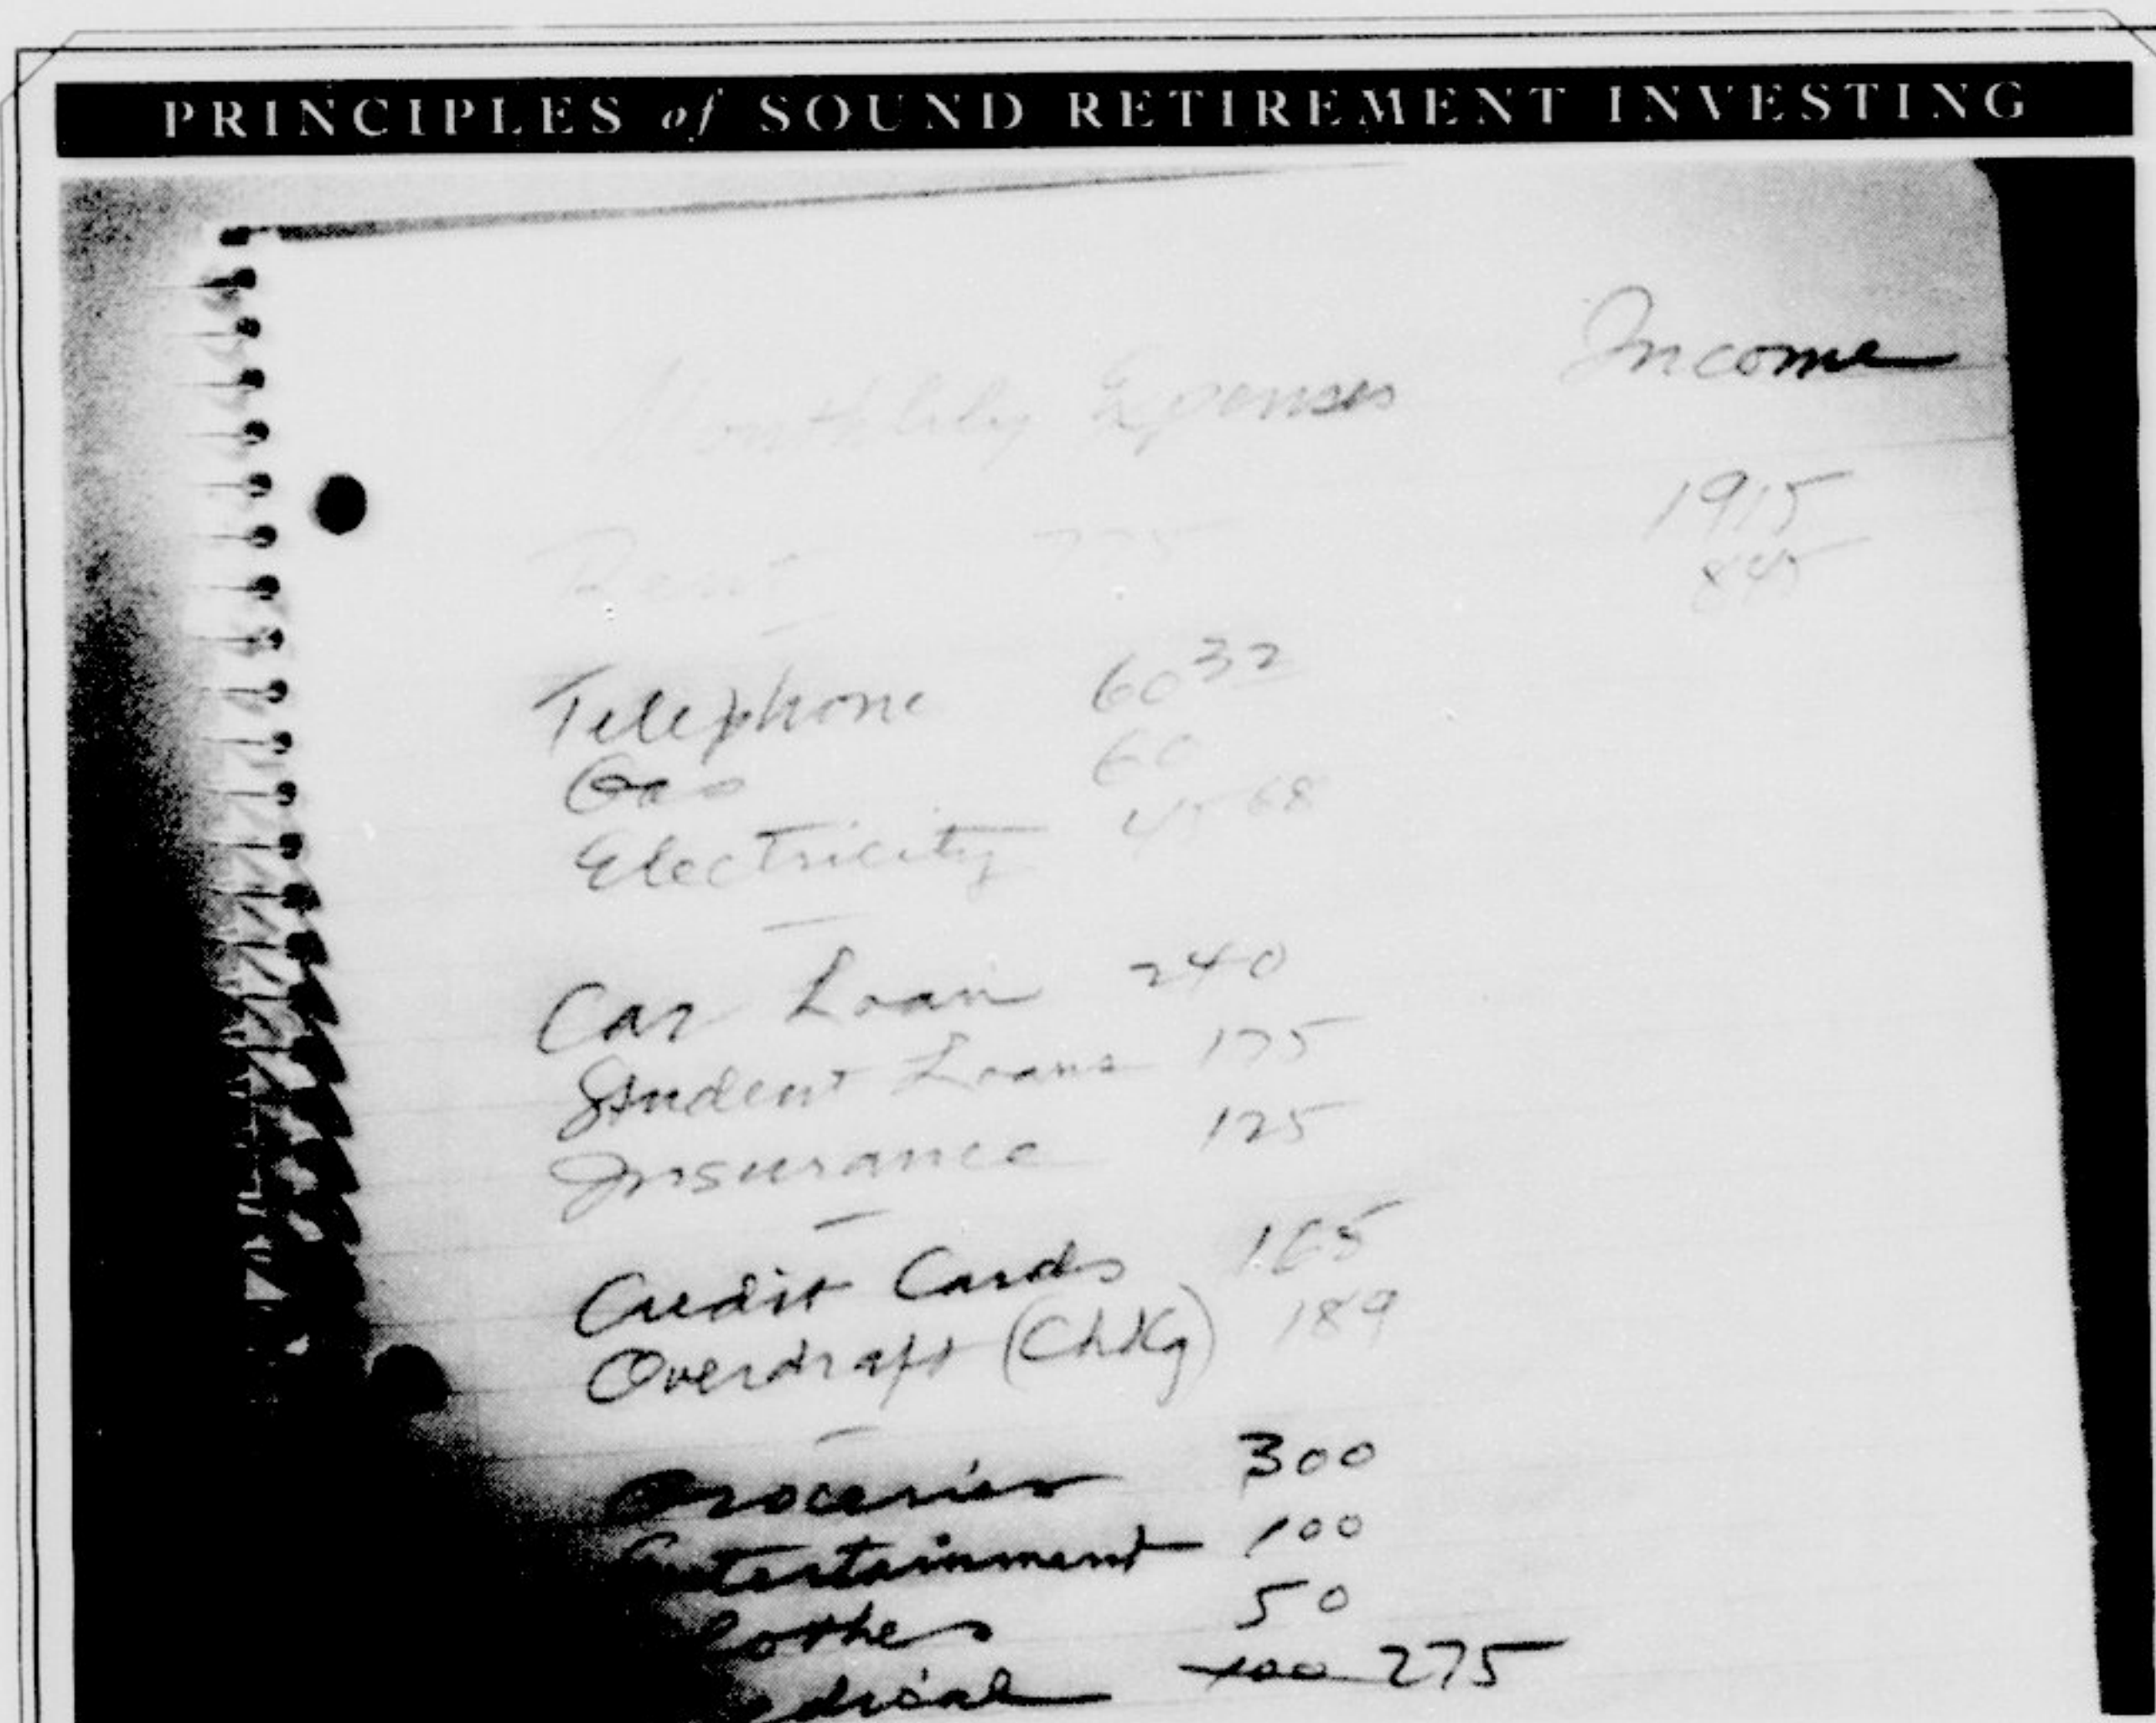 PRINCIPLES of SOUND RETIREMENT INVESTING
Monthlily Expenses Income
Rent 775 1915
845
Telephone 60 32
Gas 60
Electricity 45 68
Car Loan 240
Student Loans 175
Insurance 125
Credit Cards 165
Overdraft (ChKg) 189
Groceries 300
Entertainment 100
lothes 50
edical 100 275